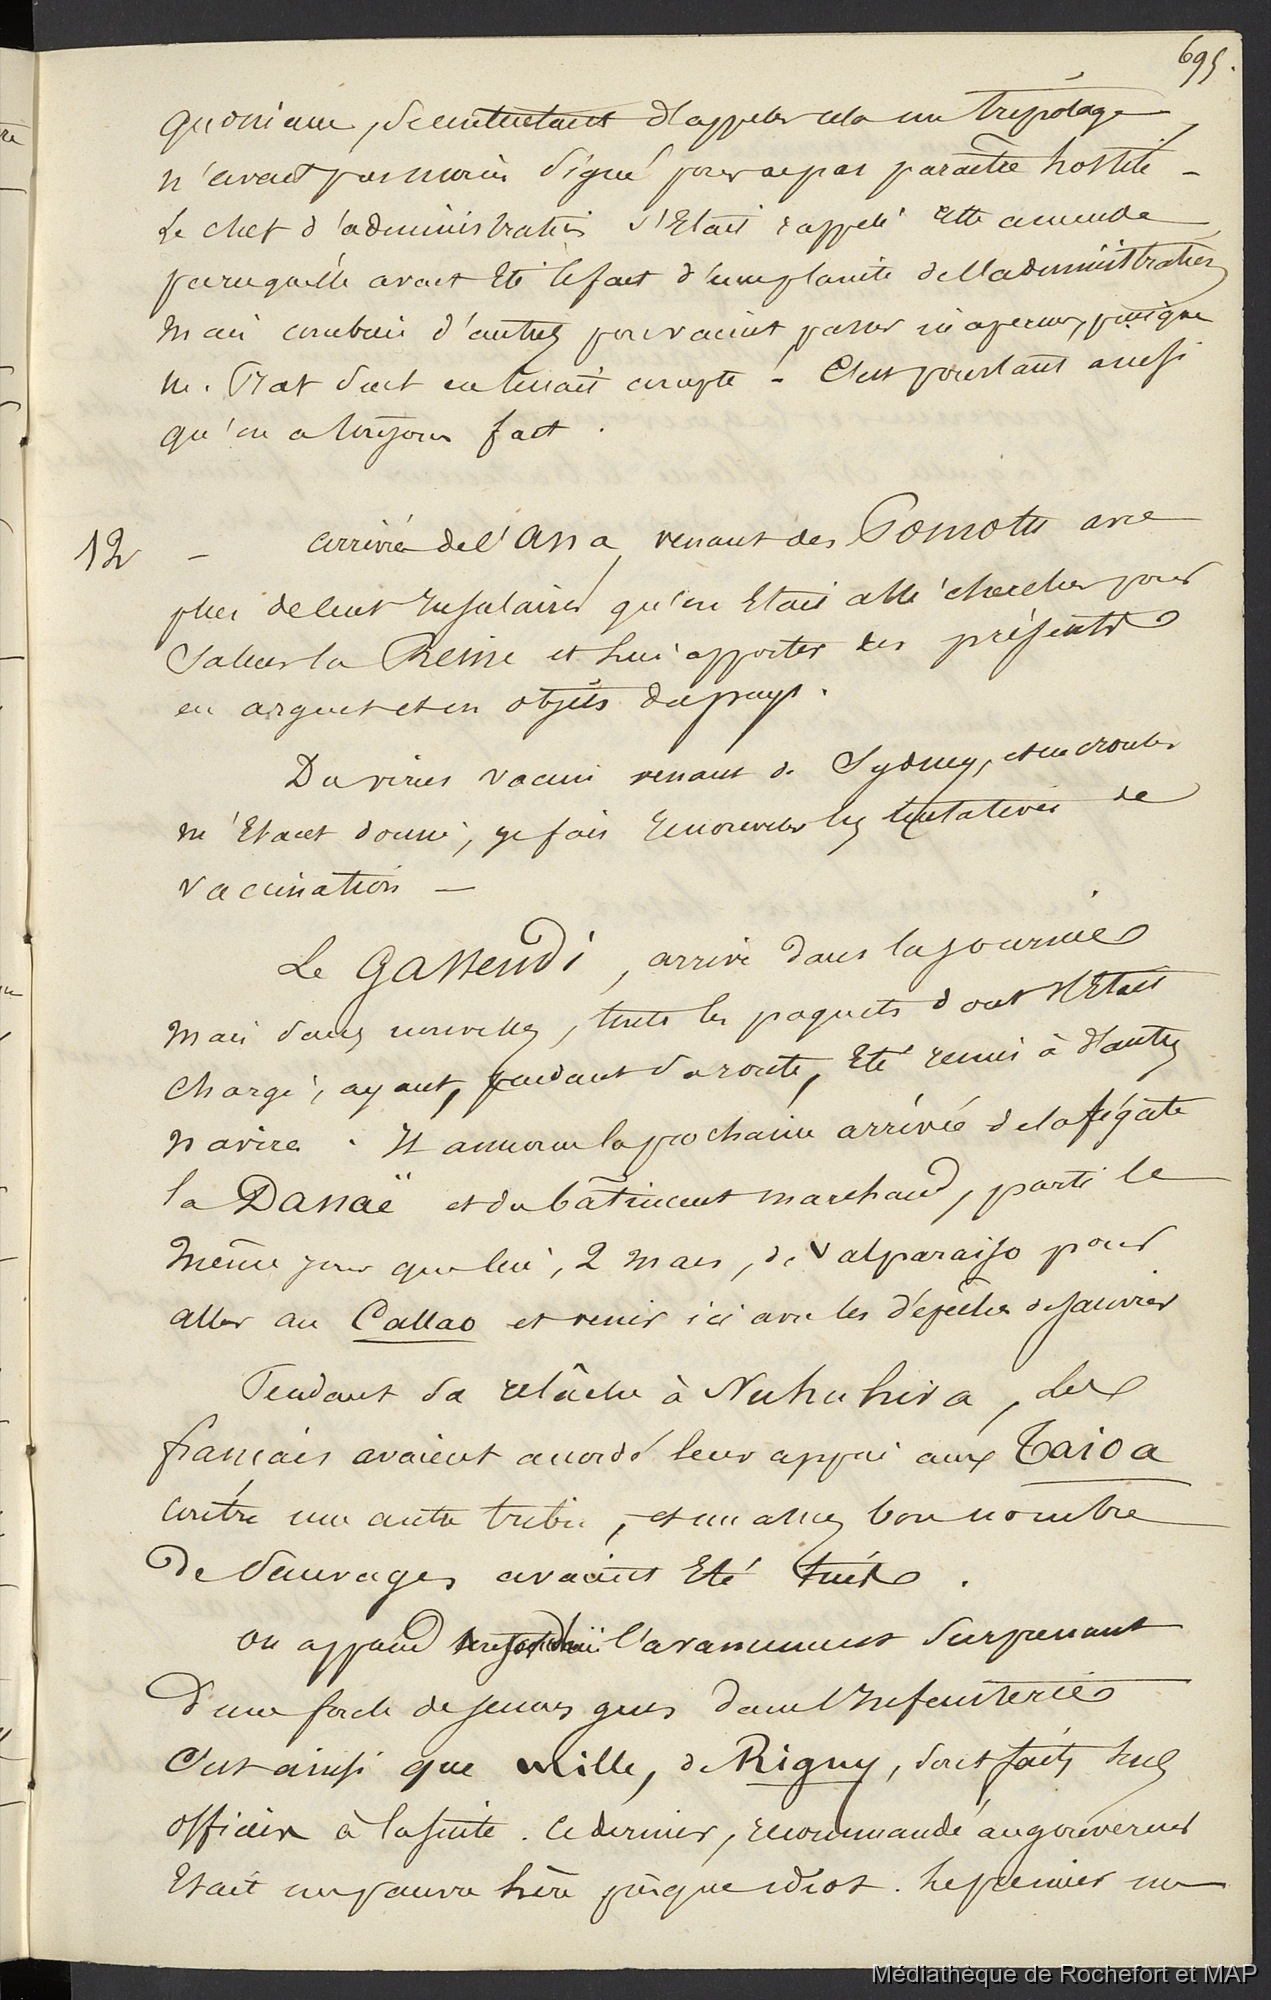 695.
quoniam, se contentant d'appeler cela un tripotage
n'avait pas moins signé pour ne pas paraître hostile -
Le chef d'administration s'Etait rappelé cette amende
parce qu'elle avait Eté le fait d'une plainte de l'administration
mais combien d'autres pouvaient passer inaperçues, puisque
m. seul en tenait compte - C'est pourtant ainsi
qu'on a toujours fait .
12 - arrivée de l'Ana, venant des Pomotu avec
plus de cent Insulaires qu'on Etait allé chercher pour
Saluer la Reine et lui apporter des présents
en argent et en objets du pays .
Du virus vaccin venant de Sydney, et en croutes
m'Etant donné, je fais renouveler les tentatives de
vaccination -
Le Gassendi, arrive dans la journée
mais sans nouvelles, tous les paquets dont il Etait
chargé, ayant, pendant sa route, Eté remis à d'autres
navires . Il annonce la prochaine arrivée de la frégate
la Danaë et du bâtiment marchand, parti le
même jour que lui, 2 mars, de Valparaiso pour
aller au Callao et venir ici avec les dépêches de Janvier
Pendant sa relâche à Nuhuhiva, les
français avaient accordé leur appui aux Taioa
contre une autre tribu, et un assez bon nombre
de Sauvages avaient Eté tués .
On apprend aujourd'hui l'avancement surprenant
d'une foule de jeunes gens dans l'Infanterie
C'est ainsi que mille, de Rigny, sont faits sous
officier à la suite . Ce dernier, recommandé au gouverneur
Etait un pauvre hère presque idiot . Le premier un